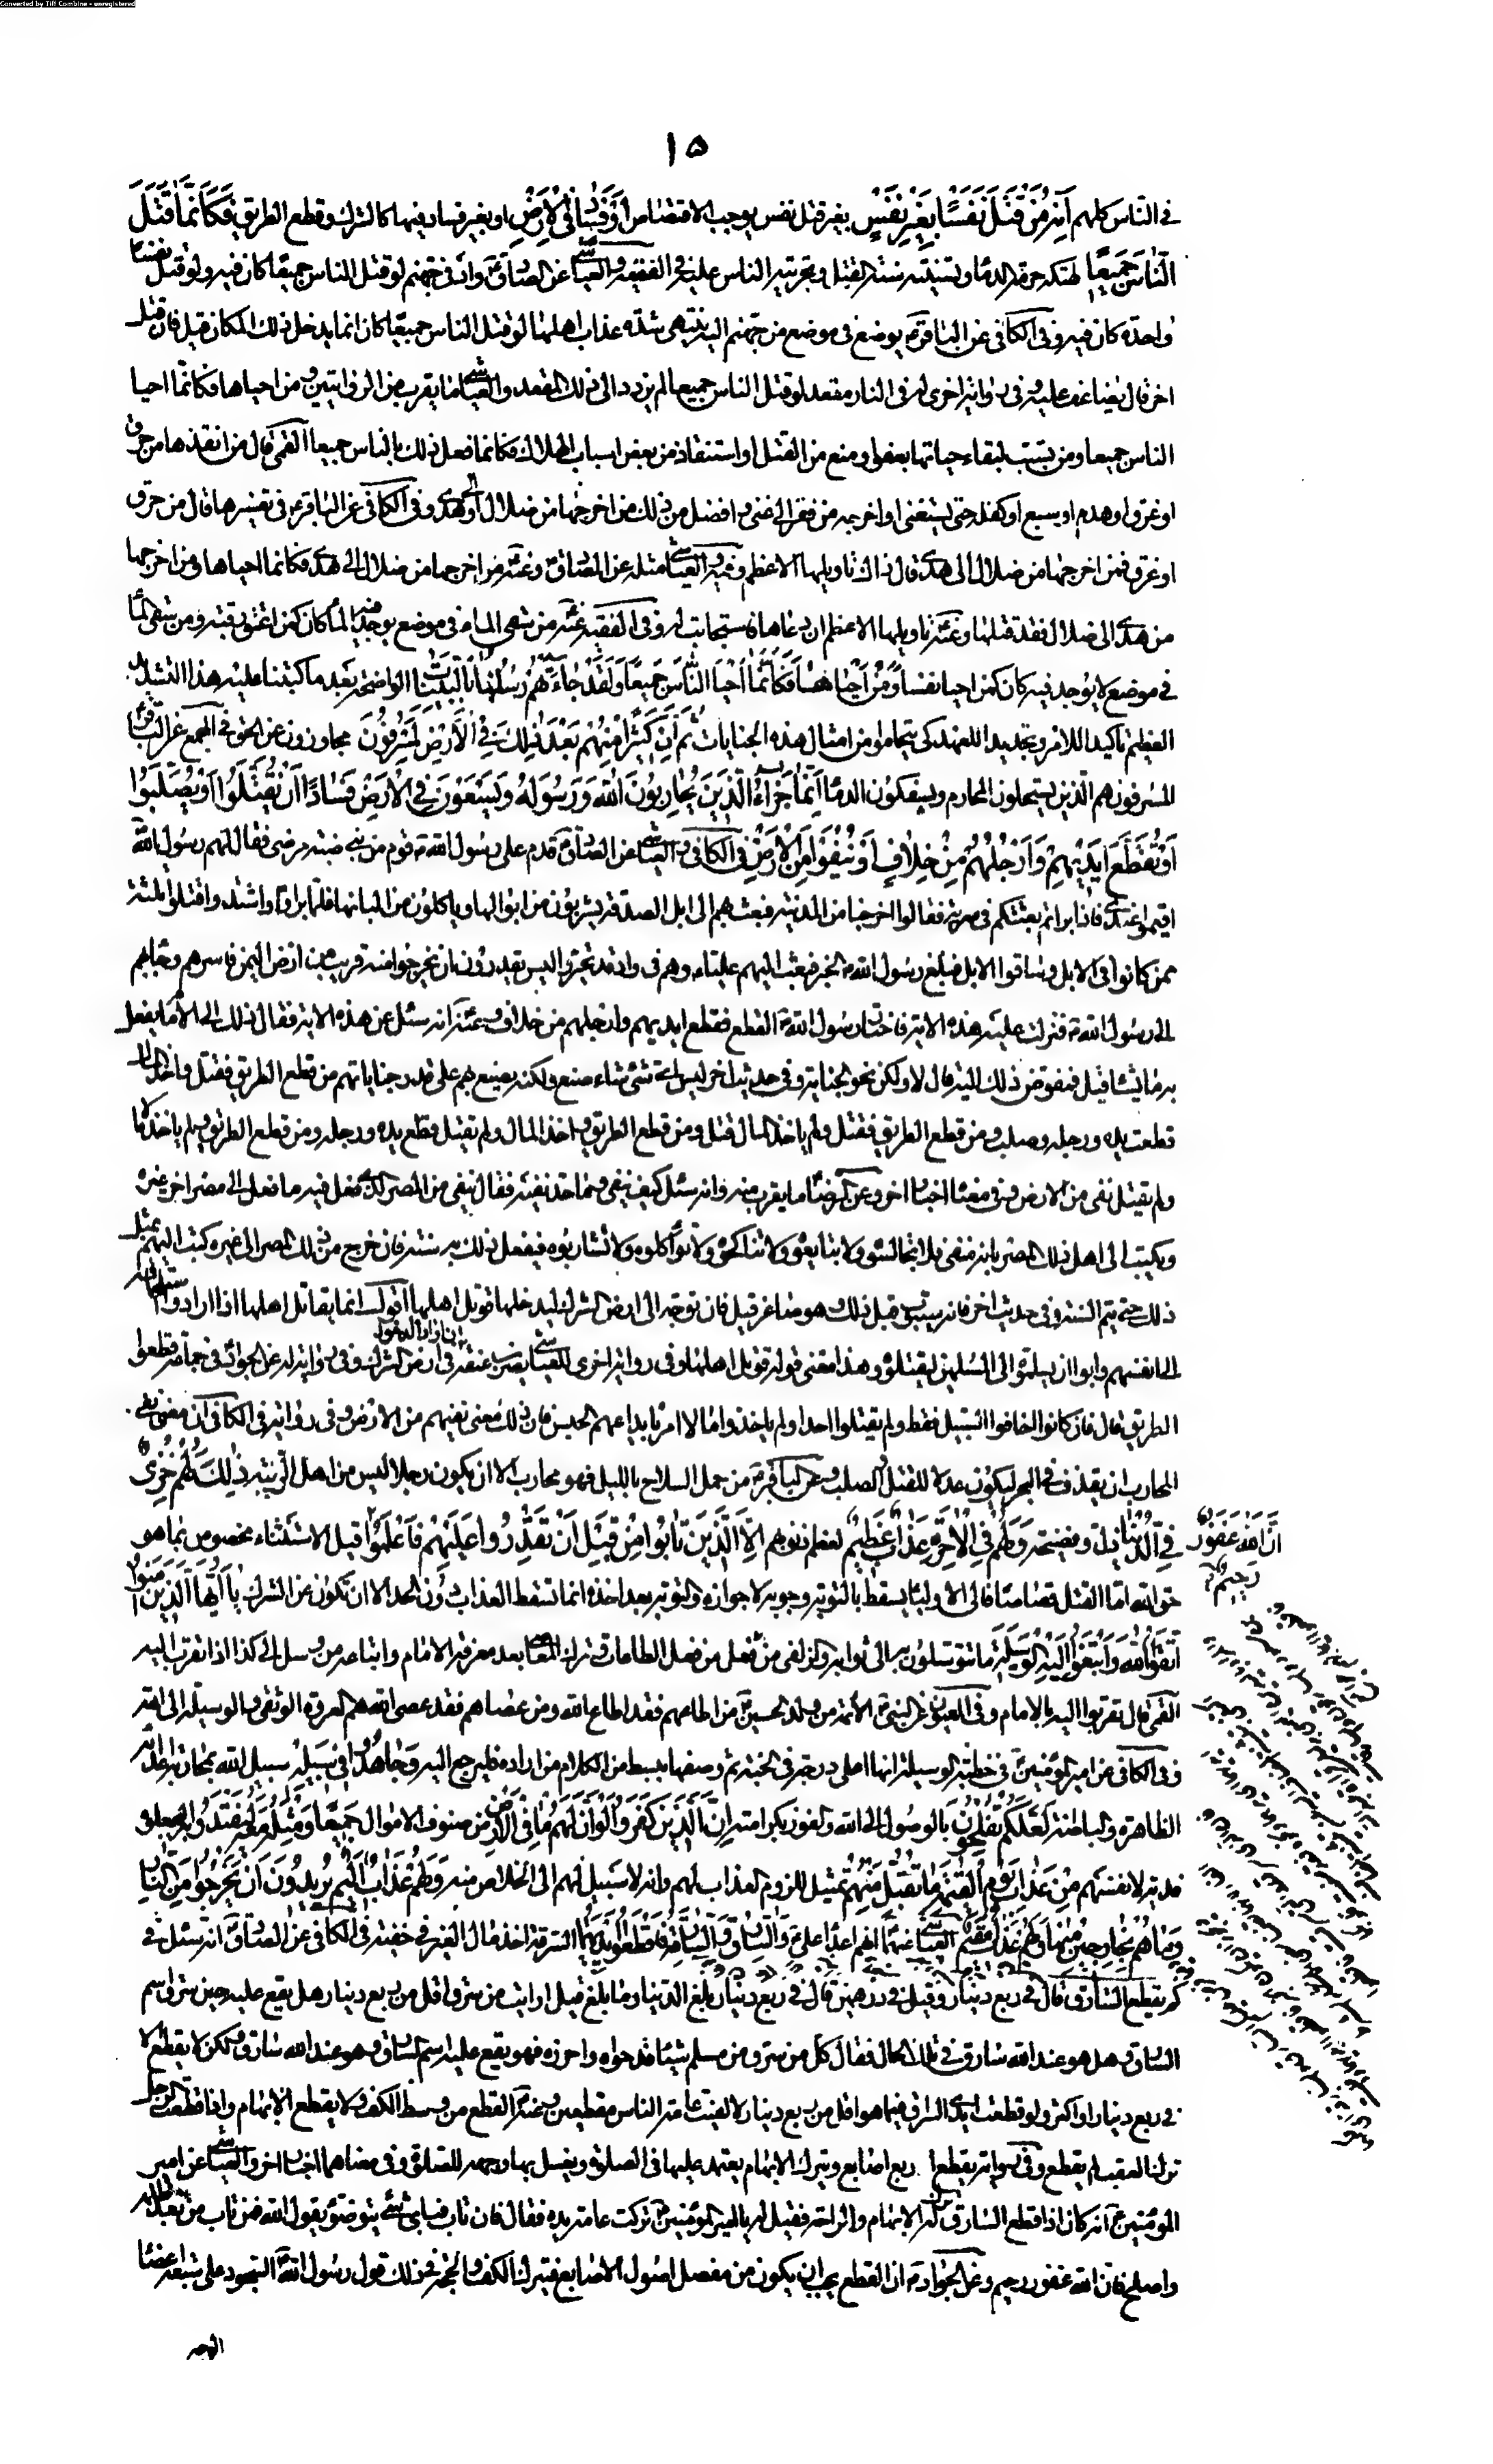 Converted by Tiff Combine - unregistered
١٥
فی الناس کلهم اَنَّهُ مَنْ قَتَلَ نَفْسًا بِغَيْرِ نَفْسٍ بغیر قتل نفس یوجب الاقتصاص اَوْ فَسَادٍ فِی الْاَرْضِ او بغیر فساد فیها کالشرک و قطع الطریق فَکَاَنَّمَا قَتَلَ
النَّاسَ جَمِیعًا لهتکه حرمة الدماء و تسنینه سنة القتل و تجرئته الناس علیه و فی الفقیه و العیاشی عن الصادق واد فی جهنم لو قتل الناس جمیعًا کان فیه و لو قتل نفسا
واحدة کان فیه و فی الکافی عن الباقر یوضع فی موضع من جهنم الیه ینتهی شدة عذاب اهلها لو قتل الناس جمیعًا کان انما یدخل ذلک المکان قیل فان قتل
اخر قال یضاعف علیه و فی روایة اخری له فی النار مقعد لو قتل الناس جمیعا لم یزدد الی ذلک المقعد و العیاشی ما یقرب من الروایتین و من احیاها فکانما احیا
الناس جمیعا و من تسبب لبقاء حیاتها بعفو او منع من القتل او استنقاذ من بعض اسباب الهلاک فکانما فعل ذلک بالناس جمیعا القمی قال من انقذها من حرق
او غرق او هدم او سبع او کفله حتی یستغنی او اخرجه من فقر الی غنی و افضل من ذلک من اخرجها من ضلال الی هدی و فی الکافی عن الباقر فی تفسیرها قال من حرق
او غرق قیل فمن اخرجها من ضلال الی هدی قال ذاک تاویلها الاعظم و فیه و العیاشی مثله عن الصادق و عنه من اخرجها من ضلال الی هدی فکانما احیاها و من اخرجها
من هدی الی ضلال فقد قتلها و عنه تاویلها الاعظم ان دعاها فاستجابت له و فی الفقیه عنه من سقی الماء فی موضع یوجد فیه الماء کان کمن اعتق رقبة و من سقی الماء
فی موضع لا یوجد فیه کان کمن احیا نفسا وَ مَنْ اَحْیَاهَا فَکَاَنَّمَا اَحْیَا النَّاسَ جَمِیعًا وَ لَقَدْ جَاءَتْهُمْ رُسُلُنَا بِالْبَیِّنَاتِ الواضحة بعد ما کتبنا علیهم هذا التشدید
العظیم تاکیدا للامر و تجدیدا للعهد کی یتحاموا من امثال هذه الجنایات ثُمَّ اِنَّ کَثِیرًا مِنْهُمْ بَعْدَ ذلِکَ فِی الْاَرْضِ لَمُسْرِفُونَ مجاوزون عن الحق فی المجمع عن الباقر
المسرفون هم الذین یستحلون المحارم و یسفکون الدماء اِنَّمَا جَزَاءُ الَّذِینَ یُحَارِبُونَ اللهَ وَ رَسُولَهُ وَ یَسْعَوْنَ فِی الْاَرْضِ فَسَادًا اَنْ یُقَتَّلُوا اَوْ یُصَلَّبُوا
اَوْ تُقَطَّعَ اَیْدِیهِمْ وَ اَرْجُلُهُمْ مِنْ خِلَافٍ اَوْ یُنْفَوْا مِنَ الْاَرْضِ فی الکافی و العیاشی عن الصادق قدم علی رسول الله قوم من بنی ضبة مرضی فقال لهم رسول الله
اقیموا عندی فاذا برأتم بعثتکم فی سریة فقالوا اخرجنا من المدینة فبعث بهم الی ابل الصدقة یشربون من ابوالها و یاکلون من البانها فلما برأوا و اشتدوا قتلوا ثلثة
ممن کانوا فی الابل و ساقوا الابل فبلغ رسول الله الخبر فبعث الیهم علیا و هم فی واد قد تحیروا لیس یقدرون ان یخرجوا منه قریب من ارض الیمن فاسرهم و جاء بهم
الی رسول الله فنزلت علیه هذه الایة فاختار رسول الله القطع فقطع ایدیهم و ارجلهم من خلاف و عنه انه سئل عن هذه الایة فقال ذلک الی الامام یفعل
به ما یشاء قیل فمفوض ذلک الیه قال لا و لکن نحو الجنایة و فی حدیث اخر لیس ای شیء شاء صنع و لکنه یصنع بهم علی قدر جنایاتهم من قطع الطریق فقتل و اخذ المال
قطعت یده و رجله و صلب و من قطع الطریق فقتل و لم یاخذ المال قتل و من قطع الطریق و اخذ المال و لم یقتل قطع یده و رجله و من قطع الطریق و لم یاخذ مالا
و لم یقتل نفی من الارض و فی معناه اخبار اخر و عن الرضا ما یقرب منه و انه سئل کیف ینفی و ما حد نفیه فقال ینفی من المصر الذی فعل فیه ما فعل الی مصر اخر غیره
و یکتب الی اهل ذلک المصر بانه منفی فلا تجالسوه و لا تبایعوه و لا تناکحوه و لا تواکلوه و لا تشاربوه فیفعل ذلک به سنة فان خرج من ذلک المصر الی غیره کتب الیهم بمثل
ذلک حتی یتم السنة و فی حدیث اخر فانه سیتوب قبل ذلک و هو صاغر قیل فان توجه الی ارض الشرک لیدخلها قوتل اهلها اقول انما یقاتل اهلها اذا ارادوا
الی انفسهم و ابوا ان یسلموه الی المسلمین لیقتلوه و هذا معنی قوله قوتل اهلها و فی روایة اخری للعیاشی یضرب عنقه ان اراد الدخول فی ارض الشرک و فی روایة له عن الجواد فی جماعة قطعوا
الطریق قال فان کانوا اخافوا السبیل فقط و لم یقتلوا احدا و لم یاخذوا مالا امر بایداعهم الحبس فان ذلک معنی نفیهم من الارض و فی روایة فی الکافی ان معنی نفی
المحارب ان یقذف فی البحر لیکون عدلا للقتل و الصلب و عن الباقر من حمل السلاح باللیل فهو محارب الا ان یکون رجلا لیس من اهل الریبة ذلِکَ لَهُمْ خِزْیٌ
فِی الدُّنْیَا ذل و فضیحة وَ لَهُمْ فِی الْاخِرَةِ عَذَابٌ عَظِیمٌ لعظم ذنوبهم اِلَّا الَّذِینَ تَابُوا مِنْ قَبْلِ اَنْ تَقْدِرُوا عَلَیْهِمْ فَاعْلَمُوا قیل الاستثناء مخصوص بما هو
اَنَّ اللهَ غَفُورٌ رَحِیمٌ
حق الله اما القتل قصاصا فالی الاولیاء یسقط بالتوبة وجوبه لا جوازه و التوبة بعد اخذه انما تسقط العذاب دون الحد الا ان تکون عن الشرک یَا اَیُّهَا الَّذِینَ امَنُوا
اتَّقُوا اللهَ وَ ابْتَغُوا اِلَیْهِ الْوَسِیلَةَ ما تتوسلون به الی ثوابه و الزلفی منه من فعل الطاعات و ترک المعاصی بعد معرفة الامام و اتباعه من وسل الی کذا اذا تقرب الیه
القمی قال تقربوا الیه بالامام و فی العیون عن النبی الائمة من ولد الحسین من اطاعهم فقد اطاع الله و من عصاهم فقد عصی الله هم العروة الوثقی و الوسیلة الی الله
و فی الکافی عن امیر المؤمنین فی خطبة الوسیلة انها اعلی درجة فی الجنة ثم وصفها ببسط من الکلام من اراده فلیرجع الیه وَ جَاهِدُوا فِی سَبِیلِهِ سبیل الله بمحاربة اعدائه
الظاهرة و الباطنة لَعَلَّکُمْ تُفْلِحُونَ بالوصول الی الله و الفوز بکرامته اِنَّ الَّذِینَ کَفَرُوا لَوْ اَنَّ لَهُمْ مَا فِی الْاَرْضِ من صنوف الاموال جَمِیعًا وَ مِثْلَهُ مَعَهُ لِیَفْتَدُوا بِهِ لیجعلوه
فدیة لانفسهم مِنْ عَذَابِ یَوْمِ الْقِیمَةِ مَا تُقُبِّلَ مِنْهُمْ تمثیل للزوم العذاب لهم و انه لا سبیل لهم الی الخلاص منه وَ لَهُمْ عَذَابٌ اَلِیمٌ یُرِیدُونَ اَنْ یَخْرُجُوا مِنَ النَّارِ
وَ مَا هُمْ بِخَارِجِینَ مِنْهَا وَ لَهُمْ عَذَابٌ مُقِیمٌ العیاشی عنهما انهم اعداء علی وَ السَّارِقُ وَ السَّارِقَةُ فَاقْطَعُوا اَیْدِیَهُمَا السرقة اخذ مال الغیر فی خفیة فی الکافی عن الصادق انه سئل فی
کم یقطع السارق قال فی ربع دینار و قیل فی درهمین قال فی ربع دینار بلغ الدینار ما بلغ قیل ارایت من سرق اقل من ربع دینار هل یقع علیه حین سرق اسم
السارق و هل هو عند الله سارق فی تلک الحال فقال کل من سرق من مسلم شیئا قد حواه و احرزه فهو یقع علیه اسم السارق و هو عند الله سارق و لکن لا یقطع الا
فی ربع دینار او اکثر و لو قطعت ایدی السراق فیما هو اقل من ربع دینار لالفیت عامة الناس مقطعین و عنه القطع من وسط الکف و لا یقطع الابهام و اذا قطعت الرجل
ترک العقب لم یقطع و فی روایة یقطع اربع اصابع و یترک الابهام یعتمد علیها فی الصلوة و یغسل بها وجهه للصلوة و فی معناهما اخبار اخر و العیاشی عن امیر
المؤمنین انه کان اذا قطع السارق ترک الابهام و الراحة فقیل له یا امیر المؤمنین ترکت عامة یده فقال فان تاب فبای شیء یتوضؤ یقول الله فمن تاب من بعد ظلمه
و اصلح فان الله غفور رحیم و عن الجواد ان القطع یجب ان یکون من مفصل اصول الاصابع فیترک الکف و الحجة فی ذلک قول رسول الله السجود علی سبعة اعضاء
الوجه